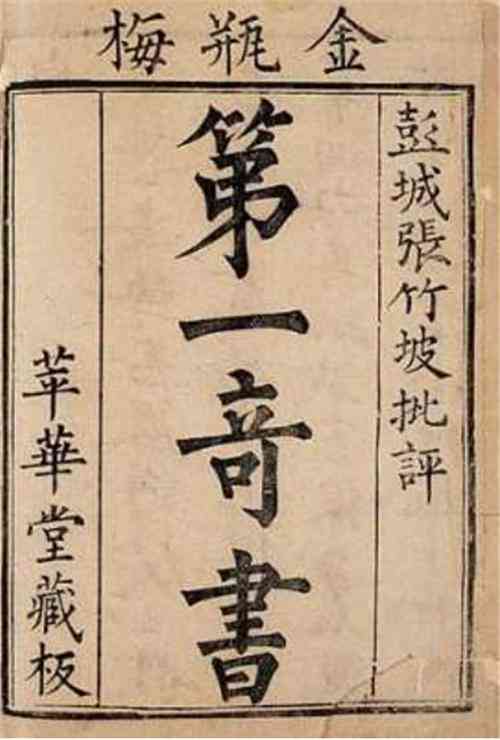 金瓶梅
彭城張竹坡批評
第一奇書
苹華堂藏板